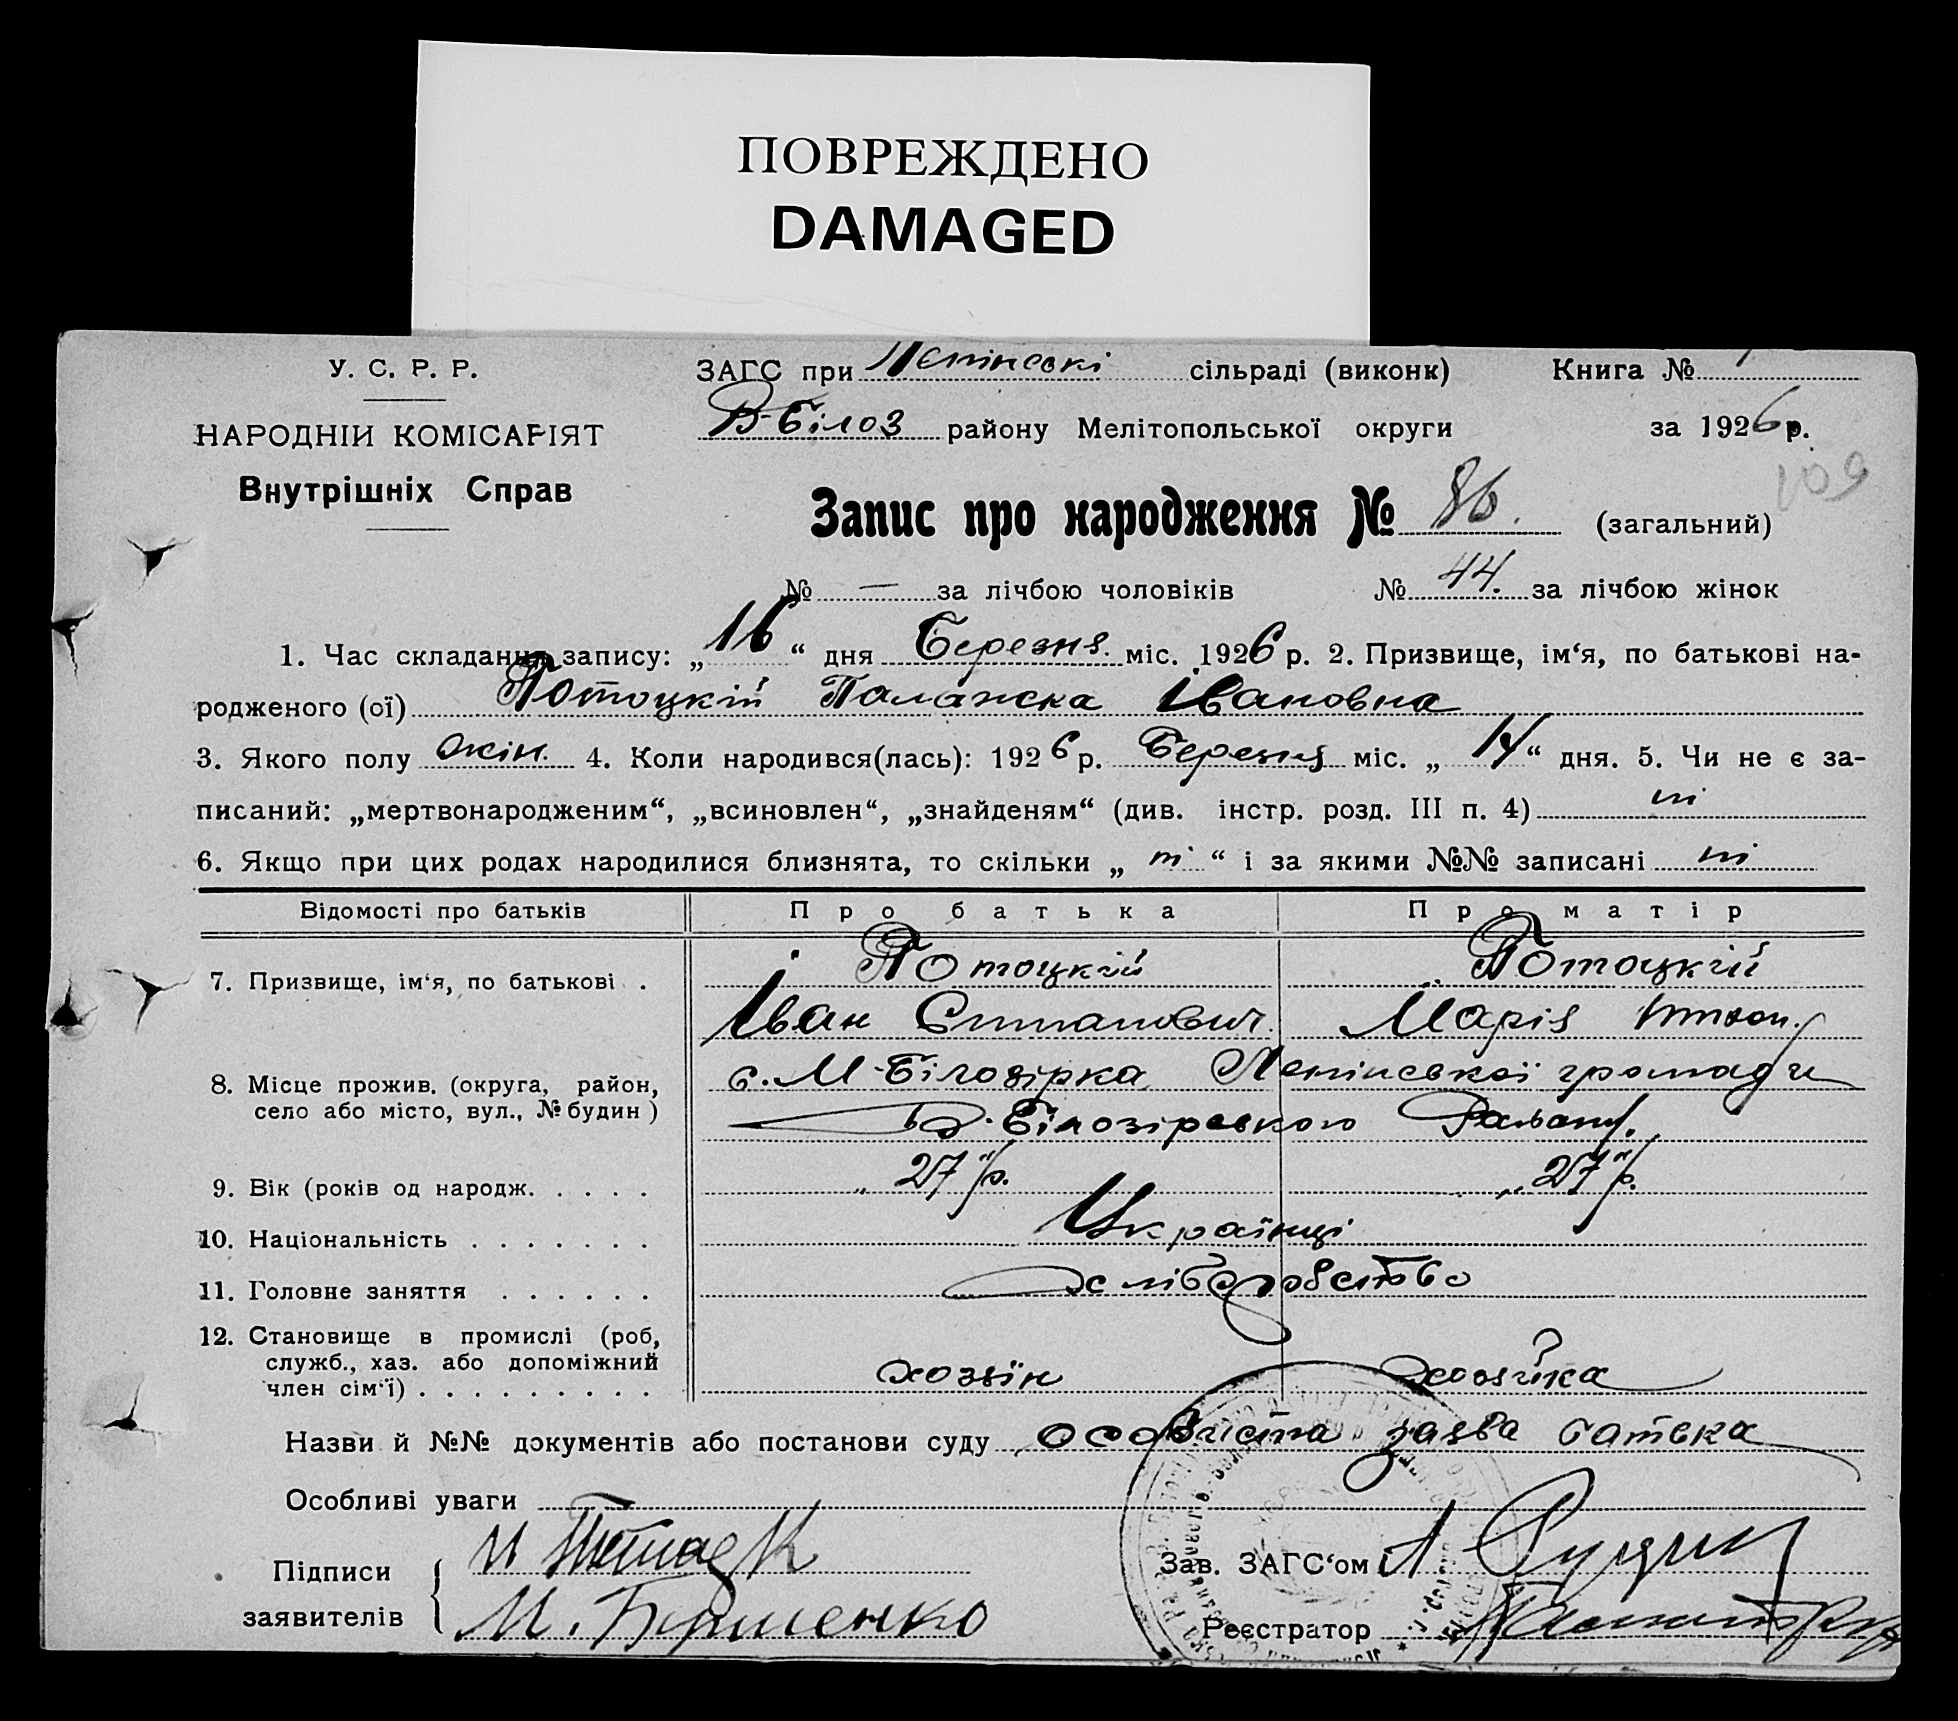 ПОВРЕЖДЕНО
DAMAGED
У. С. Р. Р.
ЗАГС при Ленінські сільраді (виконк) Книга №
НАРОДНІЙ КОМІСАРІЯТ
Внутрішніх Справ
В-Білоз району Мелітопольської округи за 1926 р.
109
Запис про народження № 86. (загальний)
№ — за лічбою чоловіків № 44. за лічбою жінок
1. Час складання запису: „16“ дня Березня міс. 1926 р. 2. Призвище, ім‘я, по батькові на-
родженого (ої) Потоцкій Палажка Івановна
3. Якого полу жін. 4. Коли народився(лась): 1926 р. Березня міс. „14“ дня. 5. Чи не є за-
писаний: „мертвонародженим“, „всиновлен“, „знайденям“ (див. інстр. розд. III п. 4) ні
6. Якщо при цих родах народилися близнята, то скільки „ні“ і за якими №№ записані ні
Відомості про батьків Про батька Про матір
7. Призвище, ім‘я, по батькові . Потоцкій Потоцкій
Іван Степанович Марія
8. Місце прожив. (округа, район, с. М-Білозірка Ленінської громади
село або місто, вул., № будин) В-Білозірського
9. Вік (років од народж. . . . . 27 р. 27 р.
10. Національність . . . . . . . Українці
11. Головне заняття . . . . . . Хліборобство
12. Становище в промислі (роб,
служб., хаз. або допоміжний
член сім‘ї) . . . . . . . . . . хозяїн хозяйка
Назви й №№ документів або постанови суду особиста заява батька
Особливі уваги
Підписи
заявителів М.
Зав. ЗАГС‘ом
Реєстратор